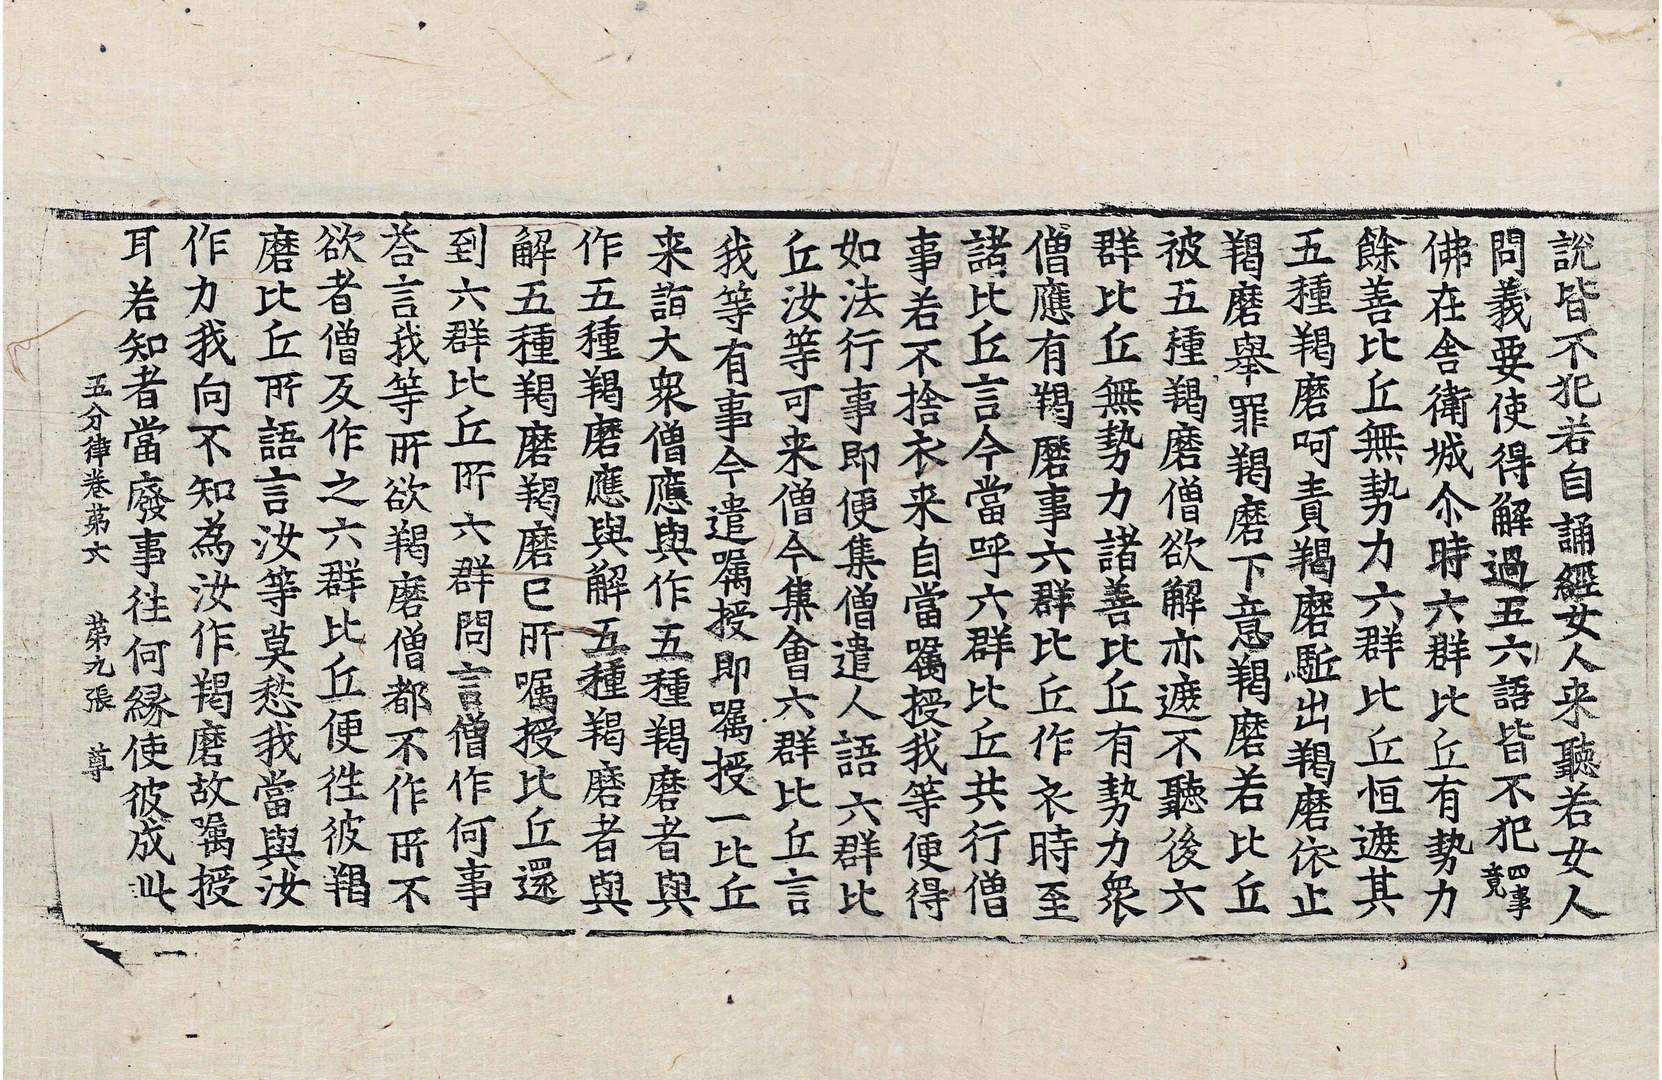 說皆不犯若自誦經女人来聽若女人
問義要使得解過五六語皆不犯四事竟
佛在舍衛城尒時六群比丘有勢力
餘善比丘無勢力六群比丘恒遮其
五種羯磨呵責羯磨駈出羯磨依止
羯磨舉罪羯磨下意羯磨若比丘
被五種羯磨僧欲解亦遮不聽後六
群比丘無勢力諸善比丘有勢力衆
僧應有羯磨事六群比丘作衣時至
諸比丘言今當呼六群比丘共行僧
事若不捨衣来自當囑授我等便得
如法行事即便集僧遣人語六群比
丘汝等可来僧今集會六群比丘言
我等有事今遣囑授即囑授一比丘
来詣大衆僧應與作五種羯磨者與
作五種羯磨應與解五種羯磨者與
解五種羯磨羯磨已所囑授比丘還
到六群比丘所六群問言僧作何事
荅言我等所欲羯磨僧都不作所不
欲者僧反作之六群比丘便徃彼羯
磨比丘所語言汝等莫愁我當與汝
作力我向不知為汝作羯磨故囑授
耳若知者當廢事徃何縁使彼成此
五分律卷苐六 苐九張 尊